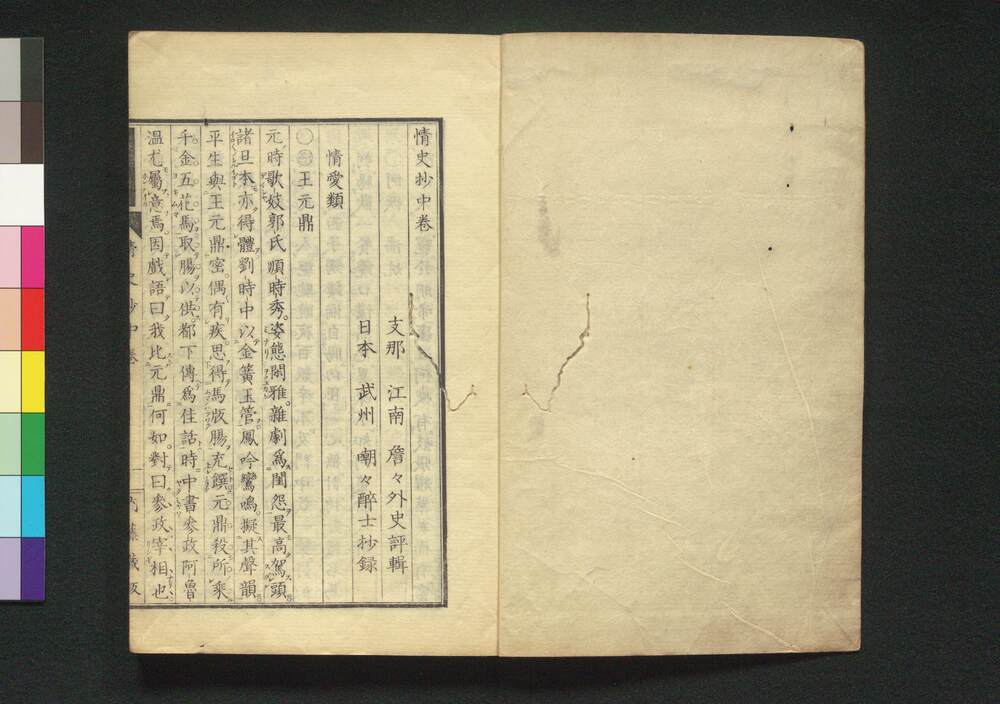 情史抄中卷
支那 江南 詹々外史評輯
日本 武州 嘲々醉士抄録
情愛類
○王元鼎
元時歌妓郭氏順時秀。姿態閑雅。雜劇爲閨怨最高駕頭
諸旦本亦得體劉時中以金簧玉管鳳吟鸞鳴擬其聲韻
平生與王元鼎密。偶有疾思得馬版腸充饌元鼎殺所乘
千金五花馬取腸以供都下傳爲佳話時中書參政阿魯
温尤屬意焉因戲語曰我比元鼎何如。對曰參政、宰相也
情史抄中卷
一